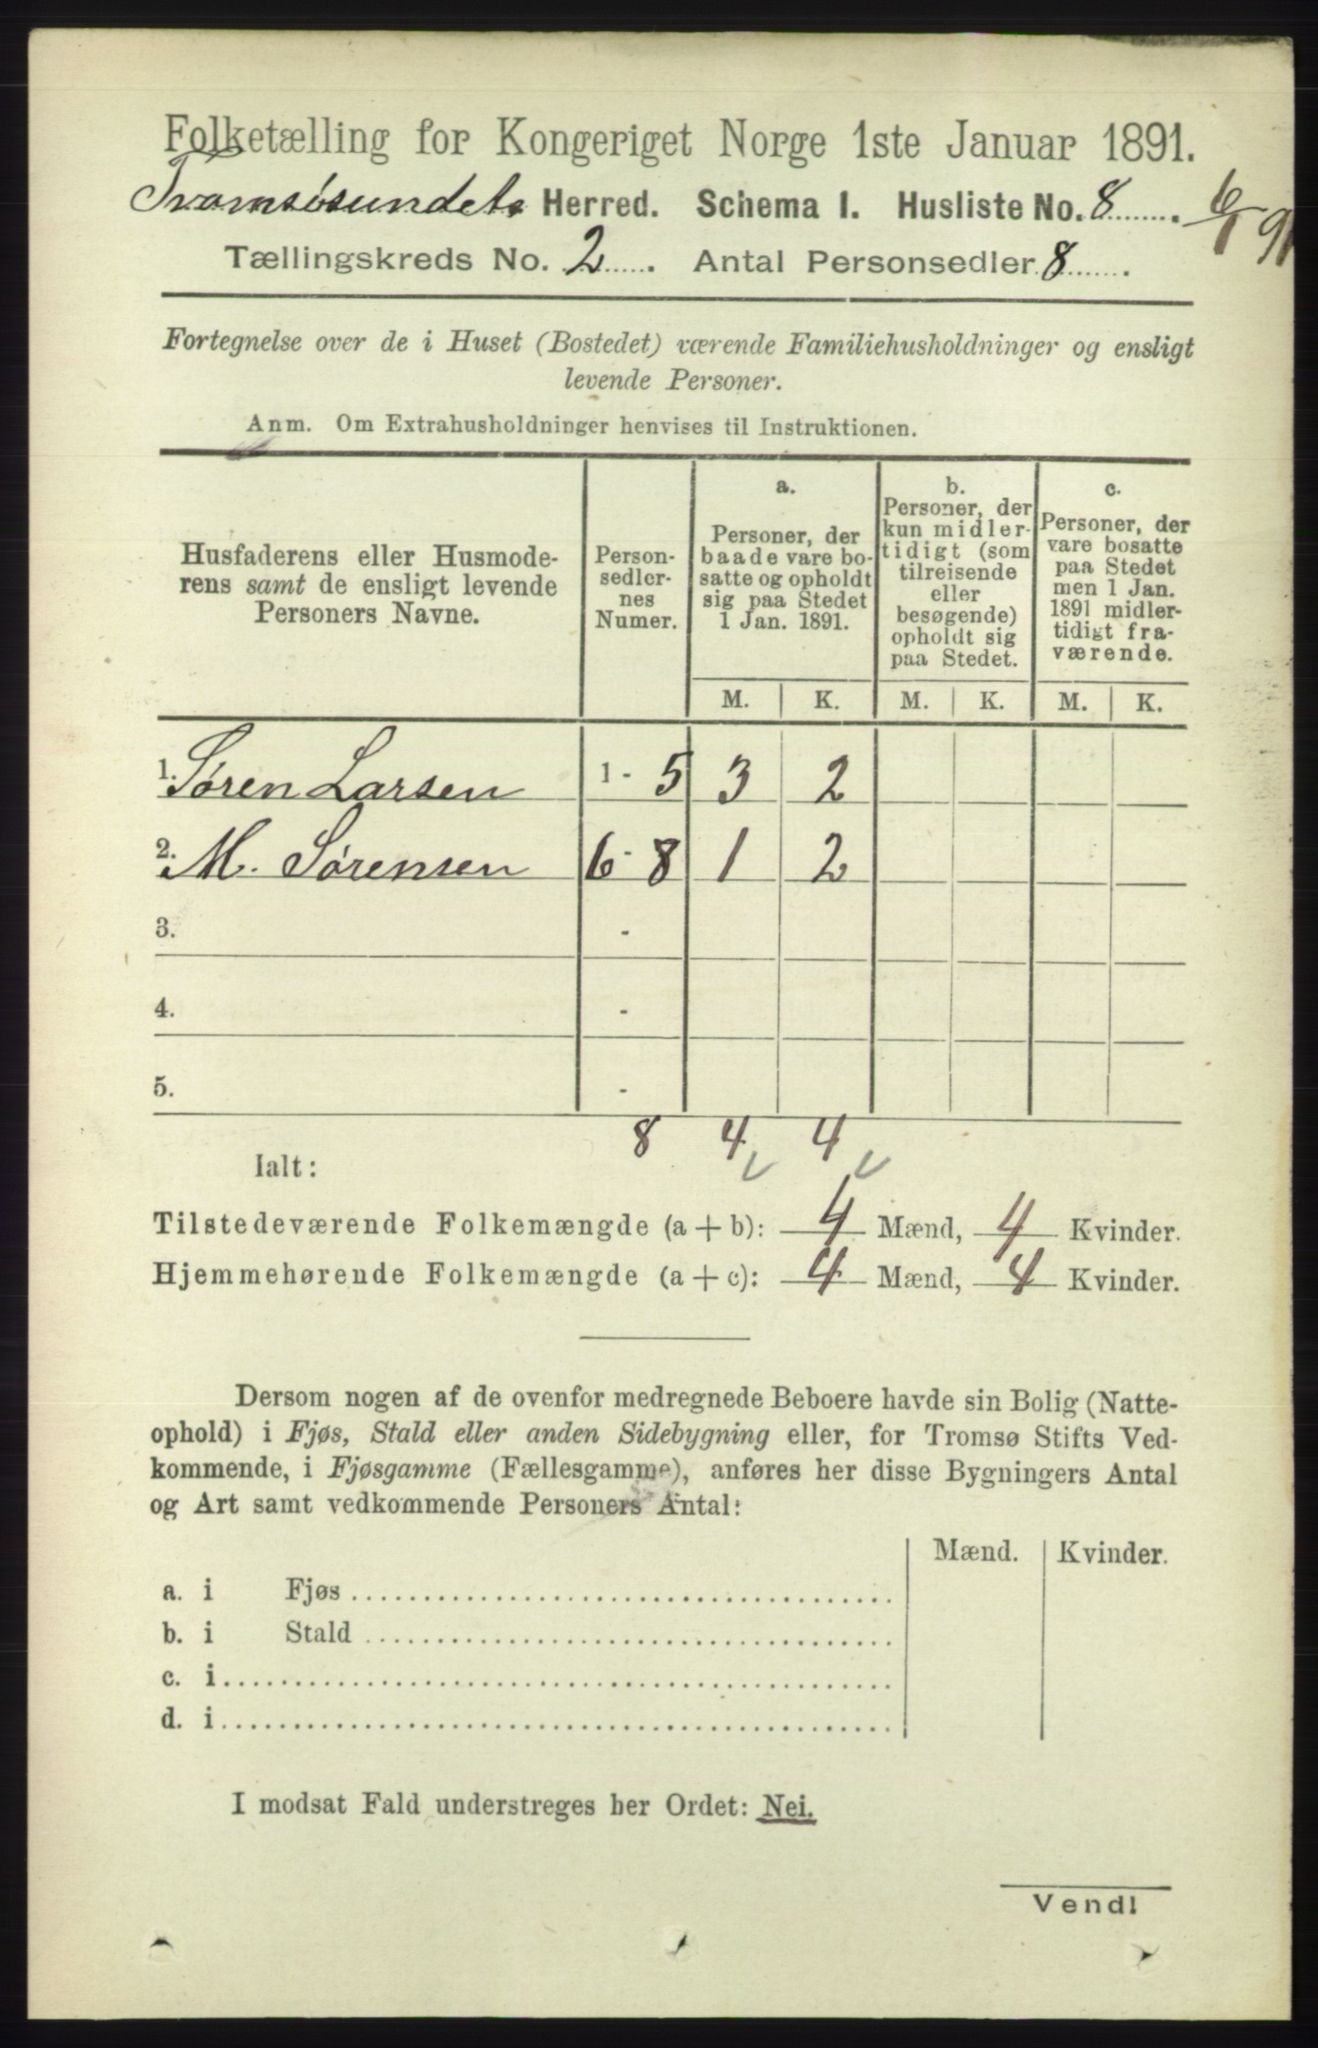 Folketælling for Kongeriget Norge 1ste Januar 1891.
Tromsøsundets Herred. Schema I. Husliste No. 8 ........ 6/1 91
Tællingskreds No. 2 ...... . Antal Personsedler 8 ....... .
Fortegnelse over de i Huset (Bostedet) værende Familiehusholdninger og ensligt
levende Personer.
Anm. Om Extrahusholdninger henvises til Instruktionen.
Husfaderens eller Husmode-
rens samt de ensligt levende
Personers Navne.
Person-
sedler-
nes
Numer.
a.
Personer, der
baade vare bo-
satte og opholdt
sig paa Stedet
1 Jan. 1891.
b.
Personer, der
kun midler-
tidigt (som
tilreisende
eller
besøgende)
opholdt sig
paa Stedet.
c.
Personer, der
vare bosatte
paa Stedet
men 1 Jan.
1891 midler-
tidigt fra-
værende.
M. K. M. K. M. K.
1. Søren Larsen 1 - 5 3 2
2. M. Sørensen 6 - 8 1 2
3. -
4. -
5. -
8 4 4
Ialt:
Tilstedeværende Folkemængde (a + b): 4 Mænd, 4 Kvinder.
Hjemmehørende Folkemængde (a + c): 4 Mænd, 4 Kvinder.
Dersom nogen af de ovenfor medregnede Beboere havde sin Bolig (Natte-
ophold) i Fjøs, Stald eller anden Sidebygning eller, for Tromsø Stifts Ved-
kommende, i Fjøsgamme (Fællesgamme), anføres her disse Bygningers Antal
og Art samt vedkommende Personers Antal:
Mænd. Kvinder.
a. i Fjøs
b. i Stald
c. i
d. i
I modsat Fald understreges her Ordet: Nei.
Vend!